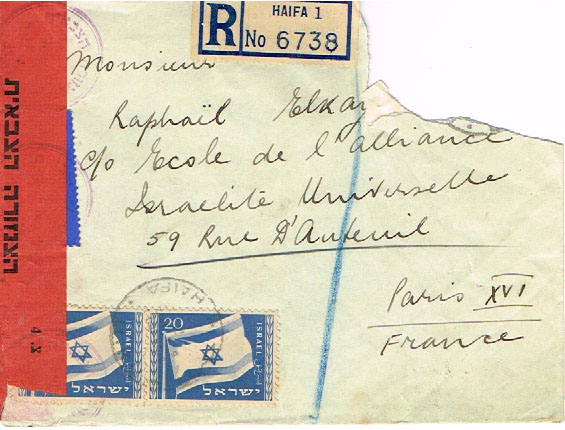 HAIFA 1
R No 6738
Monsieur
Raphaël Elkay
c/o Ecole de l'alliance
Israelité Universelle
59 Rue D'Auteuil
Paris XVI
France
HAIFA
20
ISRAEL
ישראל
ISRAEL
ישראל